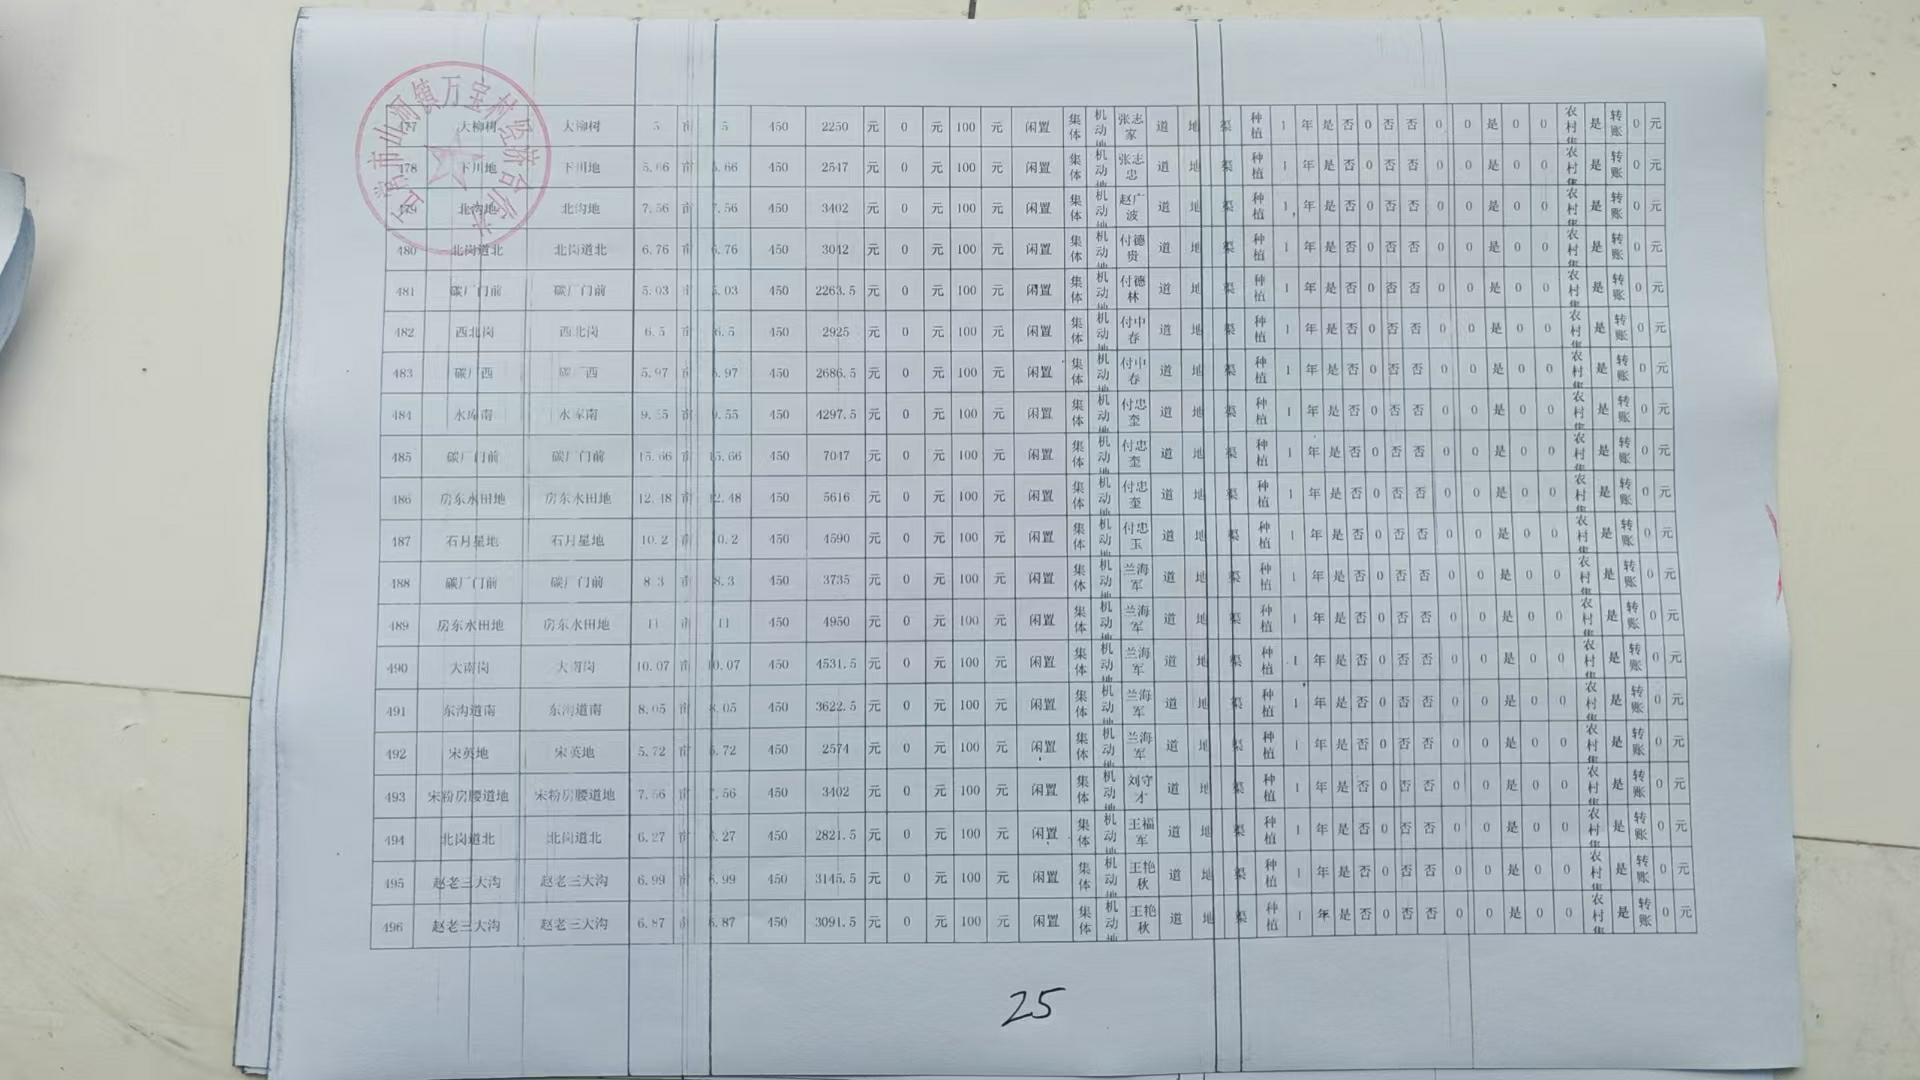 山河镇万宝村经济合
477 大柳树 大柳树 5 亩 5 450 2250 元 0 元 100 元 闲置 集体 机动地 张志家 道 地 渠 种植 1 年 是 否 0 否 否 0 0 是 0 0 农村集 是 转账 0 元
478 下川地 下川地 5.66 亩 5.66 450 2547 元 0 元 100 元 闲置 集体 机动地 张志忠 道 地 渠 种植 1 年 是 否 0 否 否 0 0 是 0 0 农村集 是 转账 0 元
479 北沟地 北沟地 7.56 亩 7.56 450 3402 元 0 元 100 元 闲置 集体 机动地 赵广波 道 地 渠 种植 1 年 是 否 0 否 否 0 0 是 0 0 农村集 是 转账 0 元
480 北岗道北 北岗道北 6.76 亩 6.76 450 3042 元 0 元 100 元 闲置 集体 机动地 付德贵 道 地 渠 种植 1 年 是 否 0 否 否 0 0 是 0 0 农村集 是 转账 0 元
481 碳厂门前 碳厂门前 5.03 亩 5.03 450 2263.5 元 0 元 100 元 闲置 集体 机动地 付德林 道 地 渠 种植 1 年 是 否 0 否 否 0 0 是 0 0 农村集 是 转账 0 元
482 西北岗 西北岗 6.5 亩 6.5 450 2925 元 0 元 100 元 闲置 集体 机动地 付中春 道 地 渠 种植 1 年 是 否 0 否 否 0 0 是 0 0 农村集 是 转账 0 元
483 碳厂西 碳厂西 5.97 亩 5.97 450 2686.5 元 0 元 100 元 闲置 集体 机动地 付中春 道 地 渠 种植 1 年 是 否 0 否 否 0 0 是 0 0 农村集 是 转账 0 元
484 水库南 水库南 9.55 亩 9.55 450 4297.5 元 0 元 100 元 闲置 集体 机动地 付忠奎 道 地 渠 种植 1 年 是 否 0 否 否 0 0 是 0 0 农村集 是 转账 0 元
485 碳厂门前 碳厂门前 15.66 亩 15.66 450 7047 元 0 元 100 元 闲置 集体 机动地 付忠奎 道 地 渠 种植 1 年 是 否 0 否 否 0 0 是 0 0 农村集 是 转账 0 元
486 房东水田地 房东水田地 12.48 亩 12.48 450 5616 元 0 元 100 元 闲置 集体 机动地 付忠奎 道 地 渠 种植 1 年 是 否 0 否 否 0 0 是 0 0 农村集 是 转账 0 元
487 石月星地 石月星地 10.2 亩 10.2 450 4590 元 0 元 100 元 闲置 集体 机动地 付忠玉 道 地 渠 种植 1 年 是 否 0 否 否 0 0 是 0 0 农村集 是 转账 0 元
488 碳厂门前 碳厂门前 8.3 亩 8.3 450 3735 元 0 元 100 元 闲置 集体 机动地 兰海军 道 地 渠 种植 1 年 是 否 0 否 否 0 0 是 0 0 农村集 是 转账 0 元
489 房东水田地 房东水田地 11 亩 11 450 4950 元 0 元 100 元 闲置 集体 机动地 兰海军 道 地 渠 种植 1 年 是 否 0 否 否 0 0 是 0 0 农村集 是 转账 0 元
490 大南岗 大南岗 10.07 亩 10.07 450 4531.5 元 0 元 100 元 闲置 集体 机动地 兰海军 道 地 渠 种植 1 年 是 否 0 否 否 0 0 是 0 0 农村集 是 转账 0 元
491 东沟道南 东沟道南 8.05 亩 8.05 450 3622.5 元 0 元 100 元 闲置 集体 机动地 兰海军 道 地 渠 种植 1 年 是 否 0 否 否 0 0 是 0 0 农村集 是 转账 0 元
492 宋英地 宋英地 5.72 亩 5.72 450 2574 元 0 元 100 元 闲置 集体 机动地 兰海军 道 地 渠 种植 1 年 是 否 0 否 否 0 0 是 0 0 农村集 是 转账 0 元
493 宋粉房腰道地 宋粉房腰道地 7.56 亩 7.56 450 3402 元 0 元 100 元 闲置 集体 机动地 刘守才 道 地 渠 种植 1 年 是 否 0 否 否 0 0 是 0 0 农村集 是 转账 0 元
494 北岗道北 北岗道北 6.27 亩 6.27 450 2821.5 元 0 元 100 元 闲置 集体 机动地 王福军 道 地 渠 种植 1 年 是 否 0 否 否 0 0 是 0 0 农村集 是 转账 0 元
495 赵老三大沟 赵老三大沟 6.99 亩 6.99 450 3145.5 元 0 元 100 元 闲置 集体 机动地 王艳秋 道 地 渠 种植 1 年 是 否 0 否 否 0 0 是 0 0 农村集 是 转账 0 元
496 赵老三大沟 赵老三大沟 6.87 亩 6.87 450 3091.5 元 0 元 100 元 闲置 集体 机动地 王艳秋 道 地 渠 种植 1 年 是 否 0 否 否 0 0 是 0 0 农村集 是 转账 0 元
25